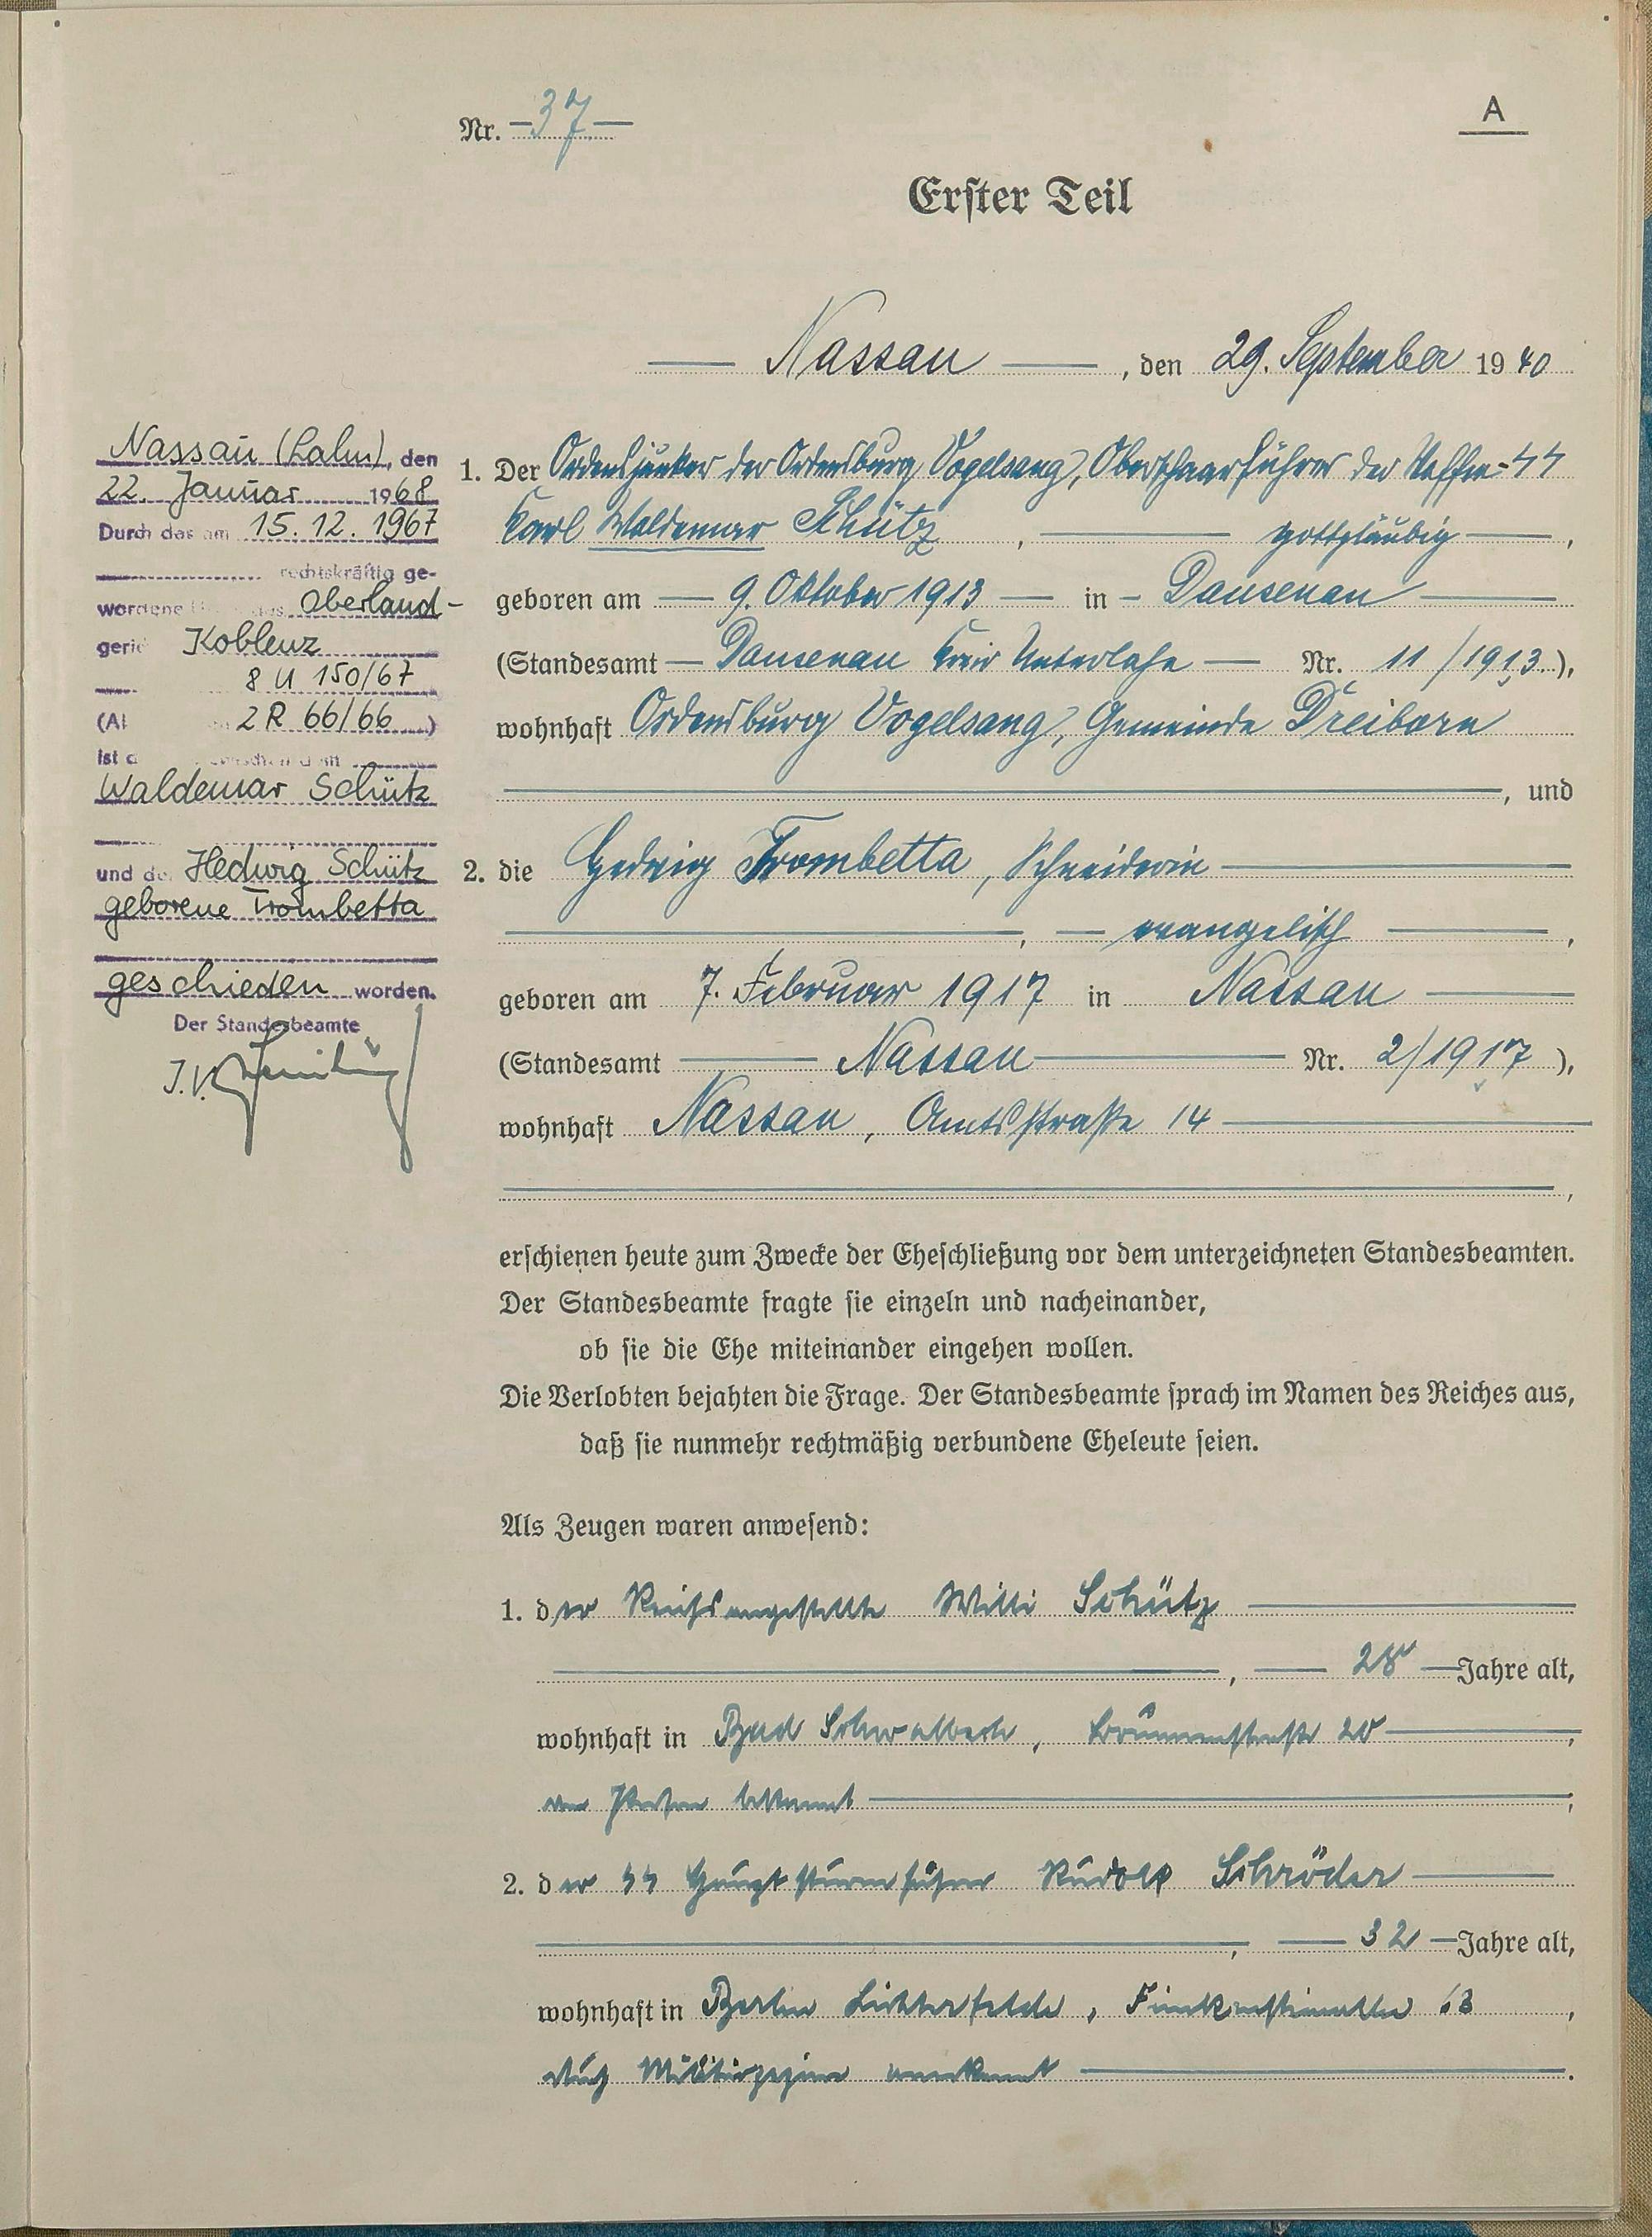 Nr. 37
A
Erster Teil
Nassau, den 29. September 1940
Nassau (Lahn), den
22. Januar 1968
Durch das am 15. 12. 1967
rechtskräftig ge-
wordene Oberland-
geri Koblenz
8 U 150/67
2 R 66/66)
ist
Waldemar Schütz
und de Hedwig Schütz
geborene Trombetta
geschieden worden.
Der Standesbeamte
J.V.
1. Der Ordensjunker der Ordensburg Vogelsang, Oberscharführer der Waffen-SS
Karl Waldemar Schütz, gottgläubig,
geboren am 9. Oktober 1913 in Dausenau
(Standesamt Dausenau Kreis Unterlahn Nr. 11/1913),
wohnhaft Ordensburg Vogelsang, Gemeinde Dreiborn
, und
2. die Hedwig Trombetta, Schneiderin
, evangelisch,
geboren am 7. Februar 1917 in Nassau
(Standesamt Nassau Nr. 2/1917),
wohnhaft Nassau, Amtsstraße 14
,
erschienen heute zum Zwecke der Eheschließung vor dem unterzeichneten Standesbeamten.
Der Standesbeamte fragte sie einzeln und nacheinander,
ob sie die Ehe miteinander eingehen wollen.
Die Verlobten bejahten die Frage. Der Standesbeamte sprach im Namen des Reiches aus,
daß sie nunmehr rechtmäßig verbundene Eheleute seien.
Als Zeugen waren anwesend:
1. der Reichsangestellte Willi Schütz
, 28 Jahre alt,
wohnhaft in Bad Schwalbach, Brunnenstraße 20,
von Person bekannt;
2. der SS Hauptsturmführer Rudolf Schröder
, 32 Jahre alt,
wohnhaft in Berlin Lichterfelde, 63,
durch anerkannt.